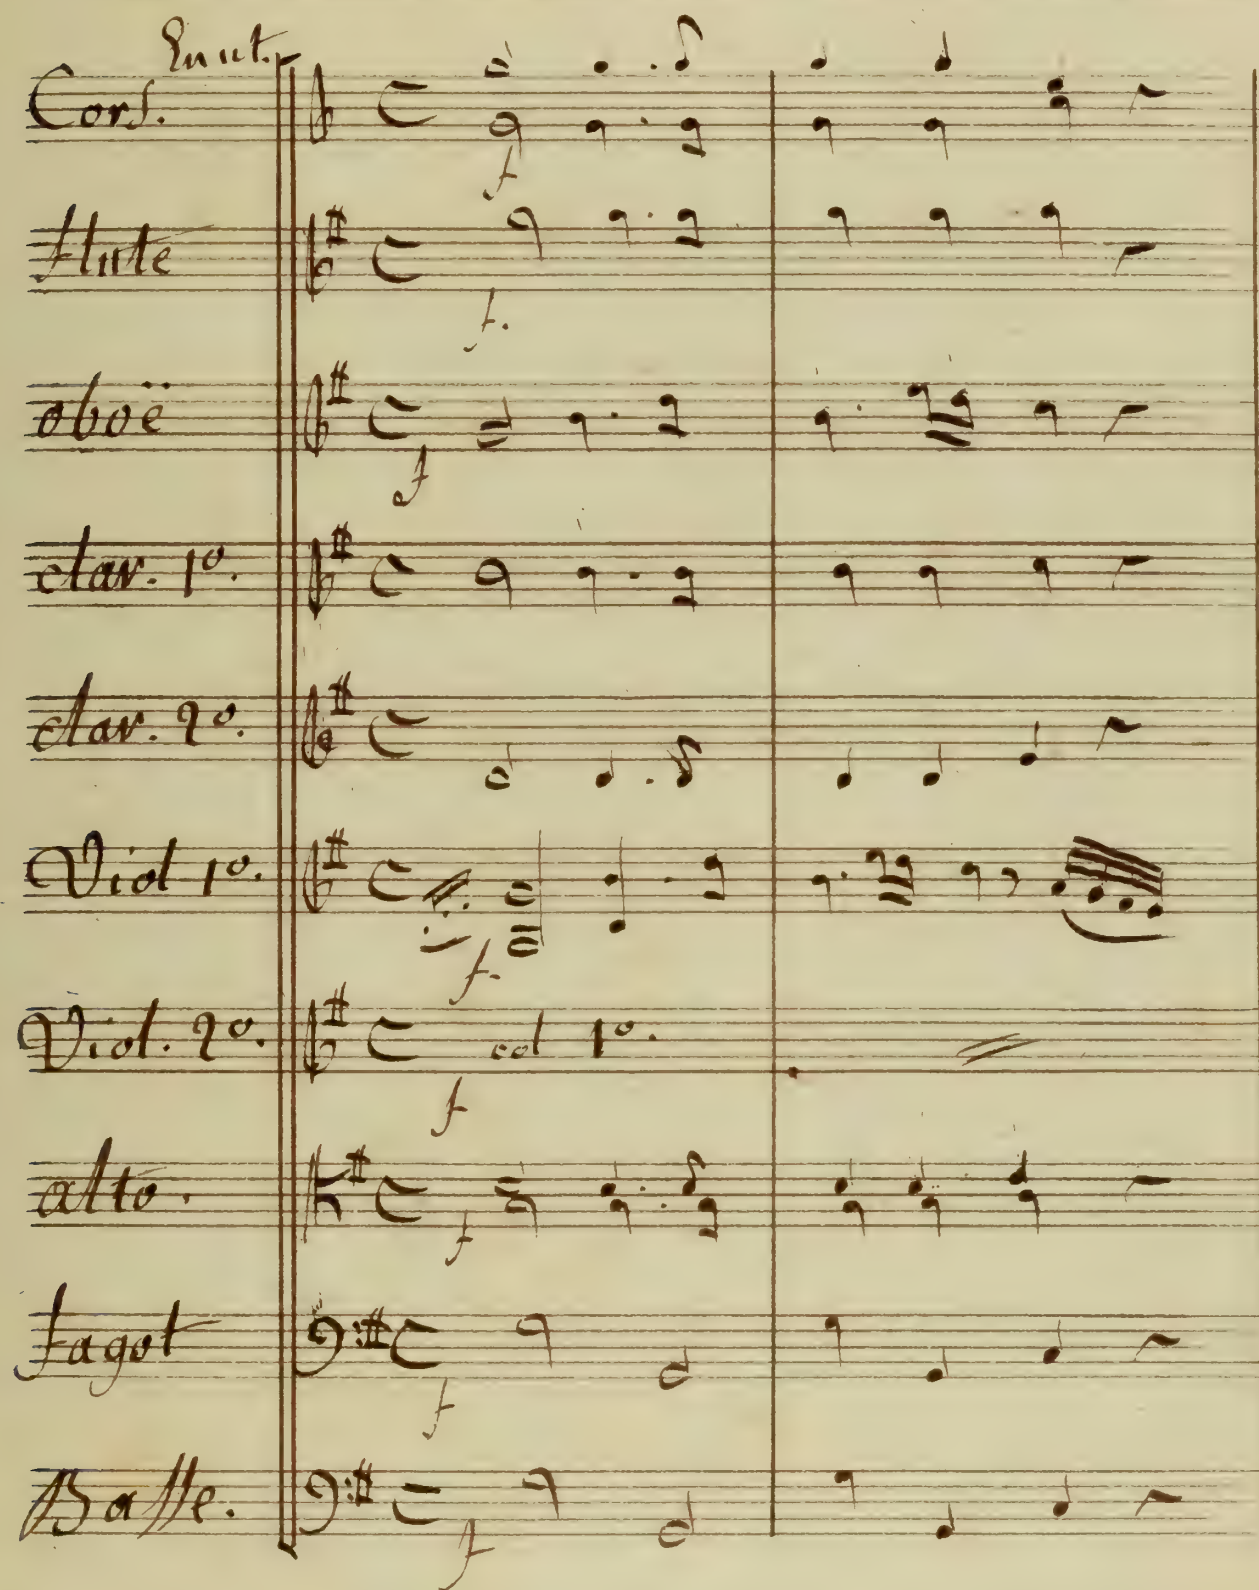 En ut.
Cors.
f
flute
f.
oboë
f
clar. 1º.
clar. 2º.
Viol 1º.
f.
Viol. 2º. col 1º.
f
alto.
f
fagot
f
Basse.
f